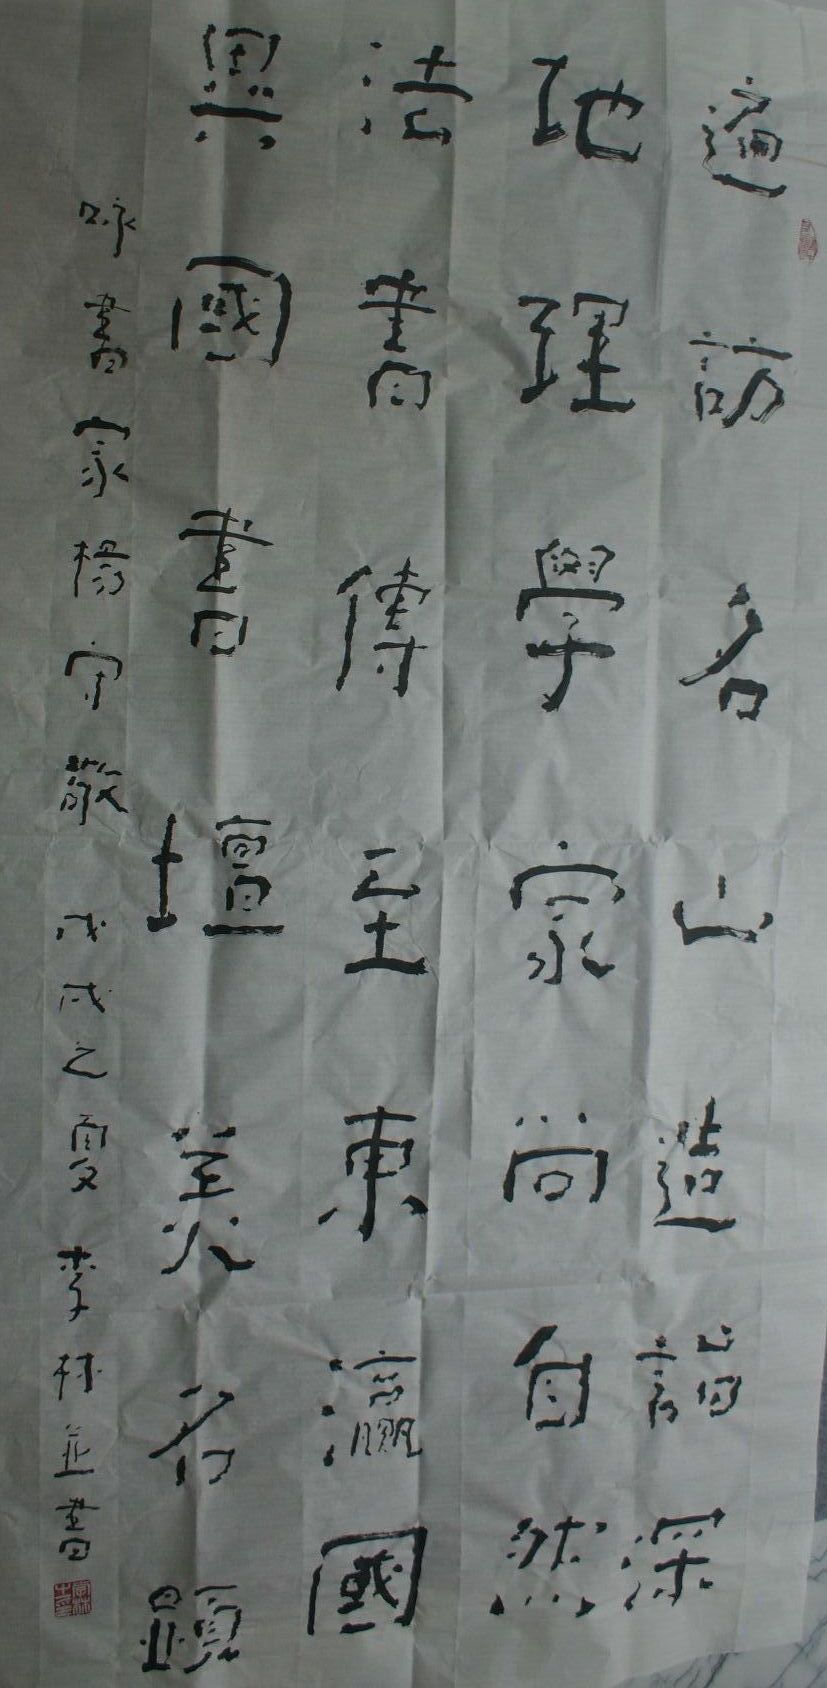 遍訪名山造詣深
地理學家尚自然
法書傳至東瀛國
異國書壇美名顯
咏書家楊守敬 戊戌之夏 李林並書